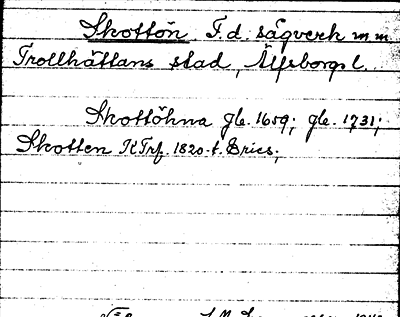 Skottön F.d. sågverk m m
Trollhättans stad, Älfsborgs l.
Skottöhna gk. 1659; gk. 1731;
Skotten KTrf. 1820-t. Brics;